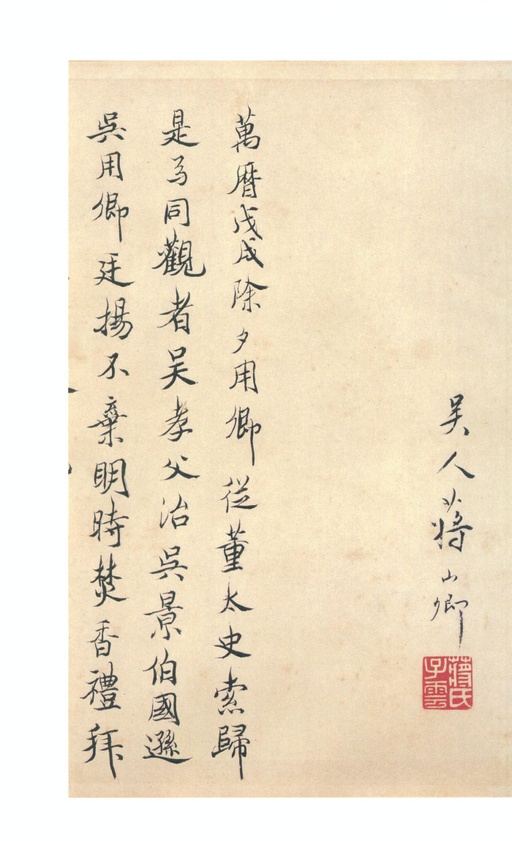 吳人蔣山卿
蔣氏子雲
萬曆戊戌除夕用卿從董太史索歸
是日同觀者吳孝父治吳景伯國遜
吳用卿廷揚不棄明時焚香禮拜